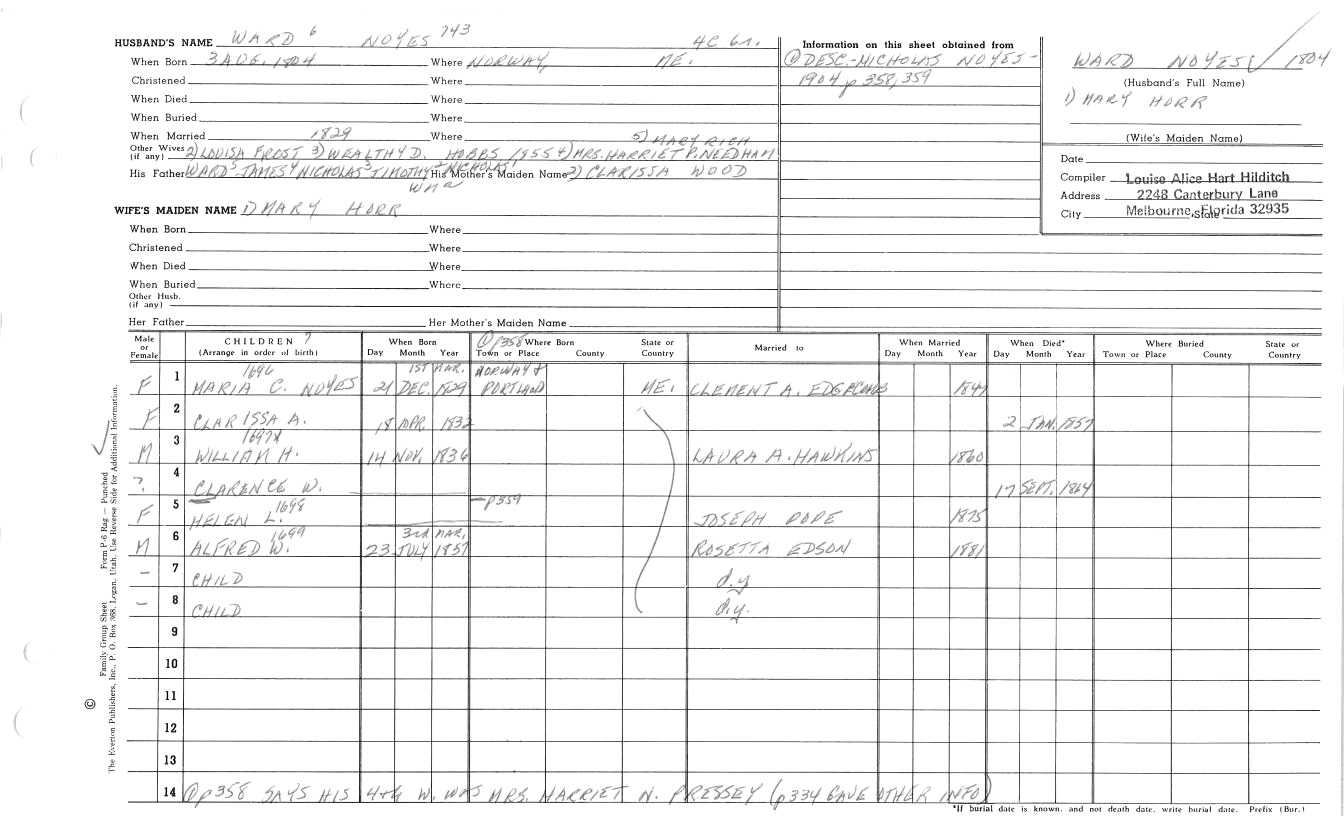 HUSBAND'S NAME WARD 6 NOYES 743 4C Gr.
When Born 3 AUG. 1804 Where NORWAY, ME.
Christened Where
When Died Where
When Buried Where
When Married 1829 Where 5) MARY RICH
Other Wives (if any) 2) LOUISA FROST 3) WEALTHY D. HOBBS 1955 4) MRS. HARRIET P. NEEDHAM
His Father WARD 5 JAMES 4 NICHOLAS 3 TIMOTHY 2 NICHOLAS 1 His Mother's Maiden Name 2) CLARISSA WOOD
Wm
WIFE'S MAIDEN NAME 1) MARY HORR
When Born Where
Christened Where
When Died Where
When Buried Where
Other Husb.
(if any)
Her Father Her Mother's Maiden Name
Information on this sheet obtained from
① DESC.-NICHOLAS NOYES -
1904 p 358, 359
WARD NOYES ✓ 1804
(Husband's Full Name)
1) MARY HORR
(Wife's Maiden Name)
Date
Compiler Louise Alice Hart Hilditch
Address 2248 Canterbury Lane
City Melbourne, Florida 32935 State
Male or Female CHILDREN 7 (Arrange in order of birth) When Born Day Month Year ① p358 Where Born Town or Place County State or Country Married to When Married Day Month Year When Died* Day Month Year Where Buried Town or Place County State or Country
1696 1ST MAR. NORWAY &
F 1 MARIA C. NOYES 21 DEC. 1829 PORTLAND ME. CLEMENT A. EDGECOMB 1847
F 2 CLARISSA A. 18 APR. 1832 2 JAN. 1857
1697
M 3 WILLIAM H. 14 NOV. 1836 LAURA A. HAWKINS 1860
? 4 CLARENCE W. 17 SEPT. 1864
F 5 HELEN L. 1698 - p359 JOSEPH POPE 1875
3rd MAR.
M 6 ALFRED W. 1699 23 JULY 1857 ROSETTA EDSON 1881
- 7 CHILD d.y
- 8 CHILD d.y.
9
10
11
12
13
14 ① p358 SAYS HIS 4th W. WAS MRS. HARRIET N. PRESSEY (p334 GAVE OTHER INFO)
*If burial date is known, and not death date, write burial date. Prefix (Bur.)
© Family Group Sheet Form P-6 Rag — Punched
The Everton Publishers, Inc., P. O. Box 368, Logan, Utah. Use Reverse Side for Additional Information.